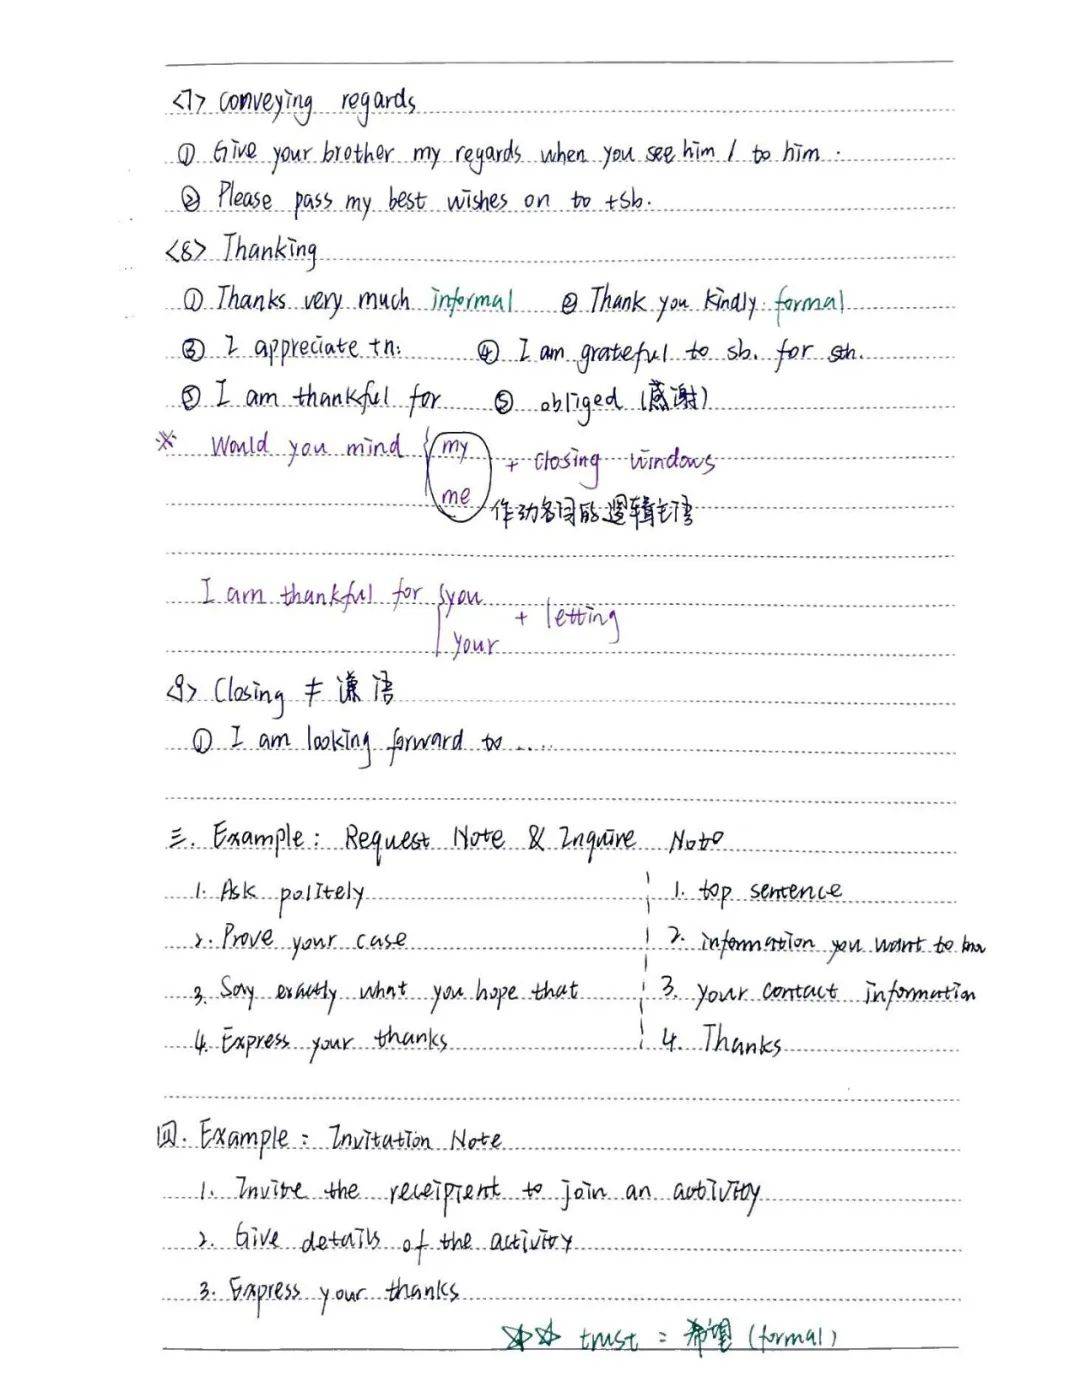 <7> conveying regards
① Give your brother my regards when you see him / to him.
② Please pass my best wishes on to +sb.
<8> Thanking
① Thanks very much informal ② Thank you kindly. formal
③ I appreciate th: ④ I am grateful to sb. for sth.
⑤ I am thankful for ⑤ obliged (感谢)
※ Would you mind { my
+ closing windows
me
作动名词的逻辑主语
I am thankful for { you
+ letting
your
<9> Closing ≠ 谦语
① I am looking forward to .....
三. Example: Request Note & Inquire Note
1. Ask politely 1. top sentence
2. Prove your case 2. information you want to know
3. Say exactly what you hope that 3. your contact information
4. Express your thanks 4. Thanks
四. Example: Invitation Note
1. Invite the receipient to join an activity
2. Give details of the activity
3. Express your thanks
☆☆ trust = 希望 (formal)